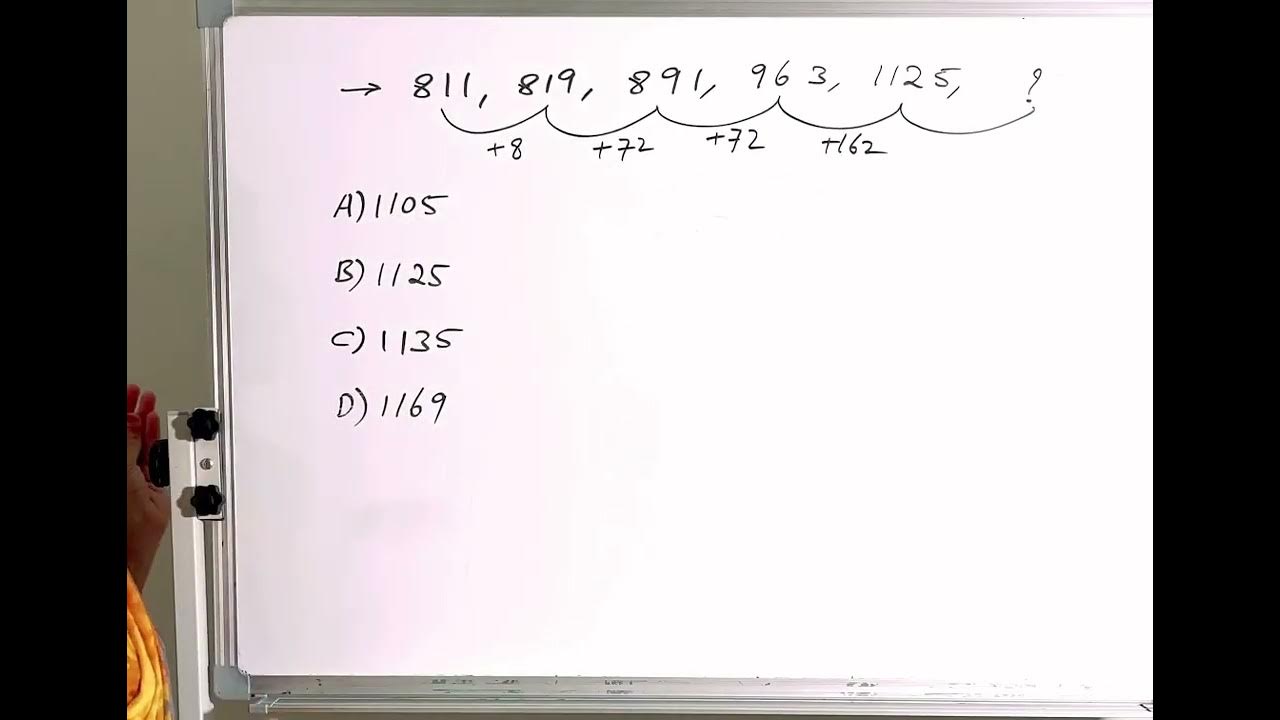 → 811, 819, 891, 963, 1125, ?
+8 +72 +72 +162
A) 1105
B) 1125
C) 1135
D) 1169